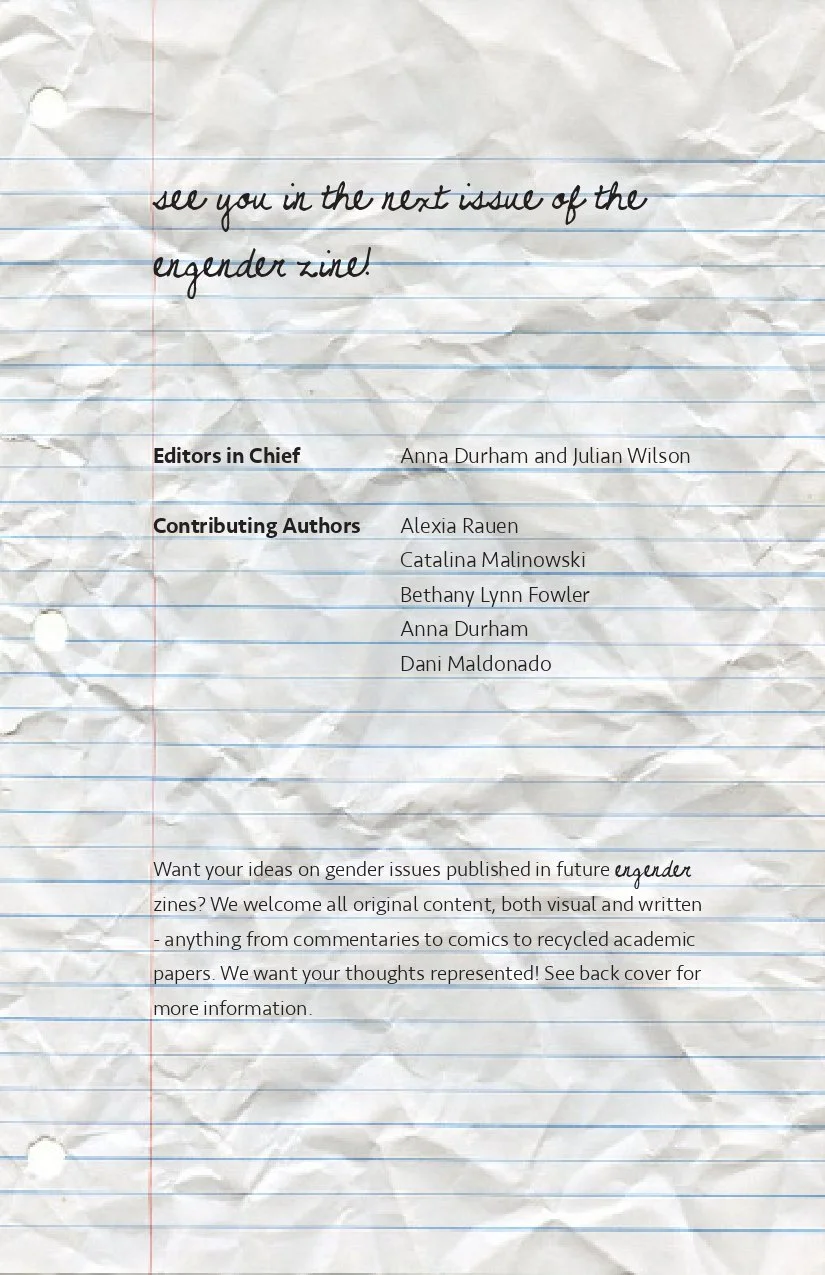 see you in the next issue of the
engender zine!
Editors in Chief Anna Durham and Julian Wilson
Contributing Authors Alexia Rauen
Catalina Malinowski
Bethany Lynn Fowler
Anna Durham
Dani Maldonado
Want your ideas on gender issues published in future engender
zines? We welcome all original content, both visual and written
- anything from commentaries to comics to recycled academic
papers. We want your thoughts represented! See back cover for
more information.